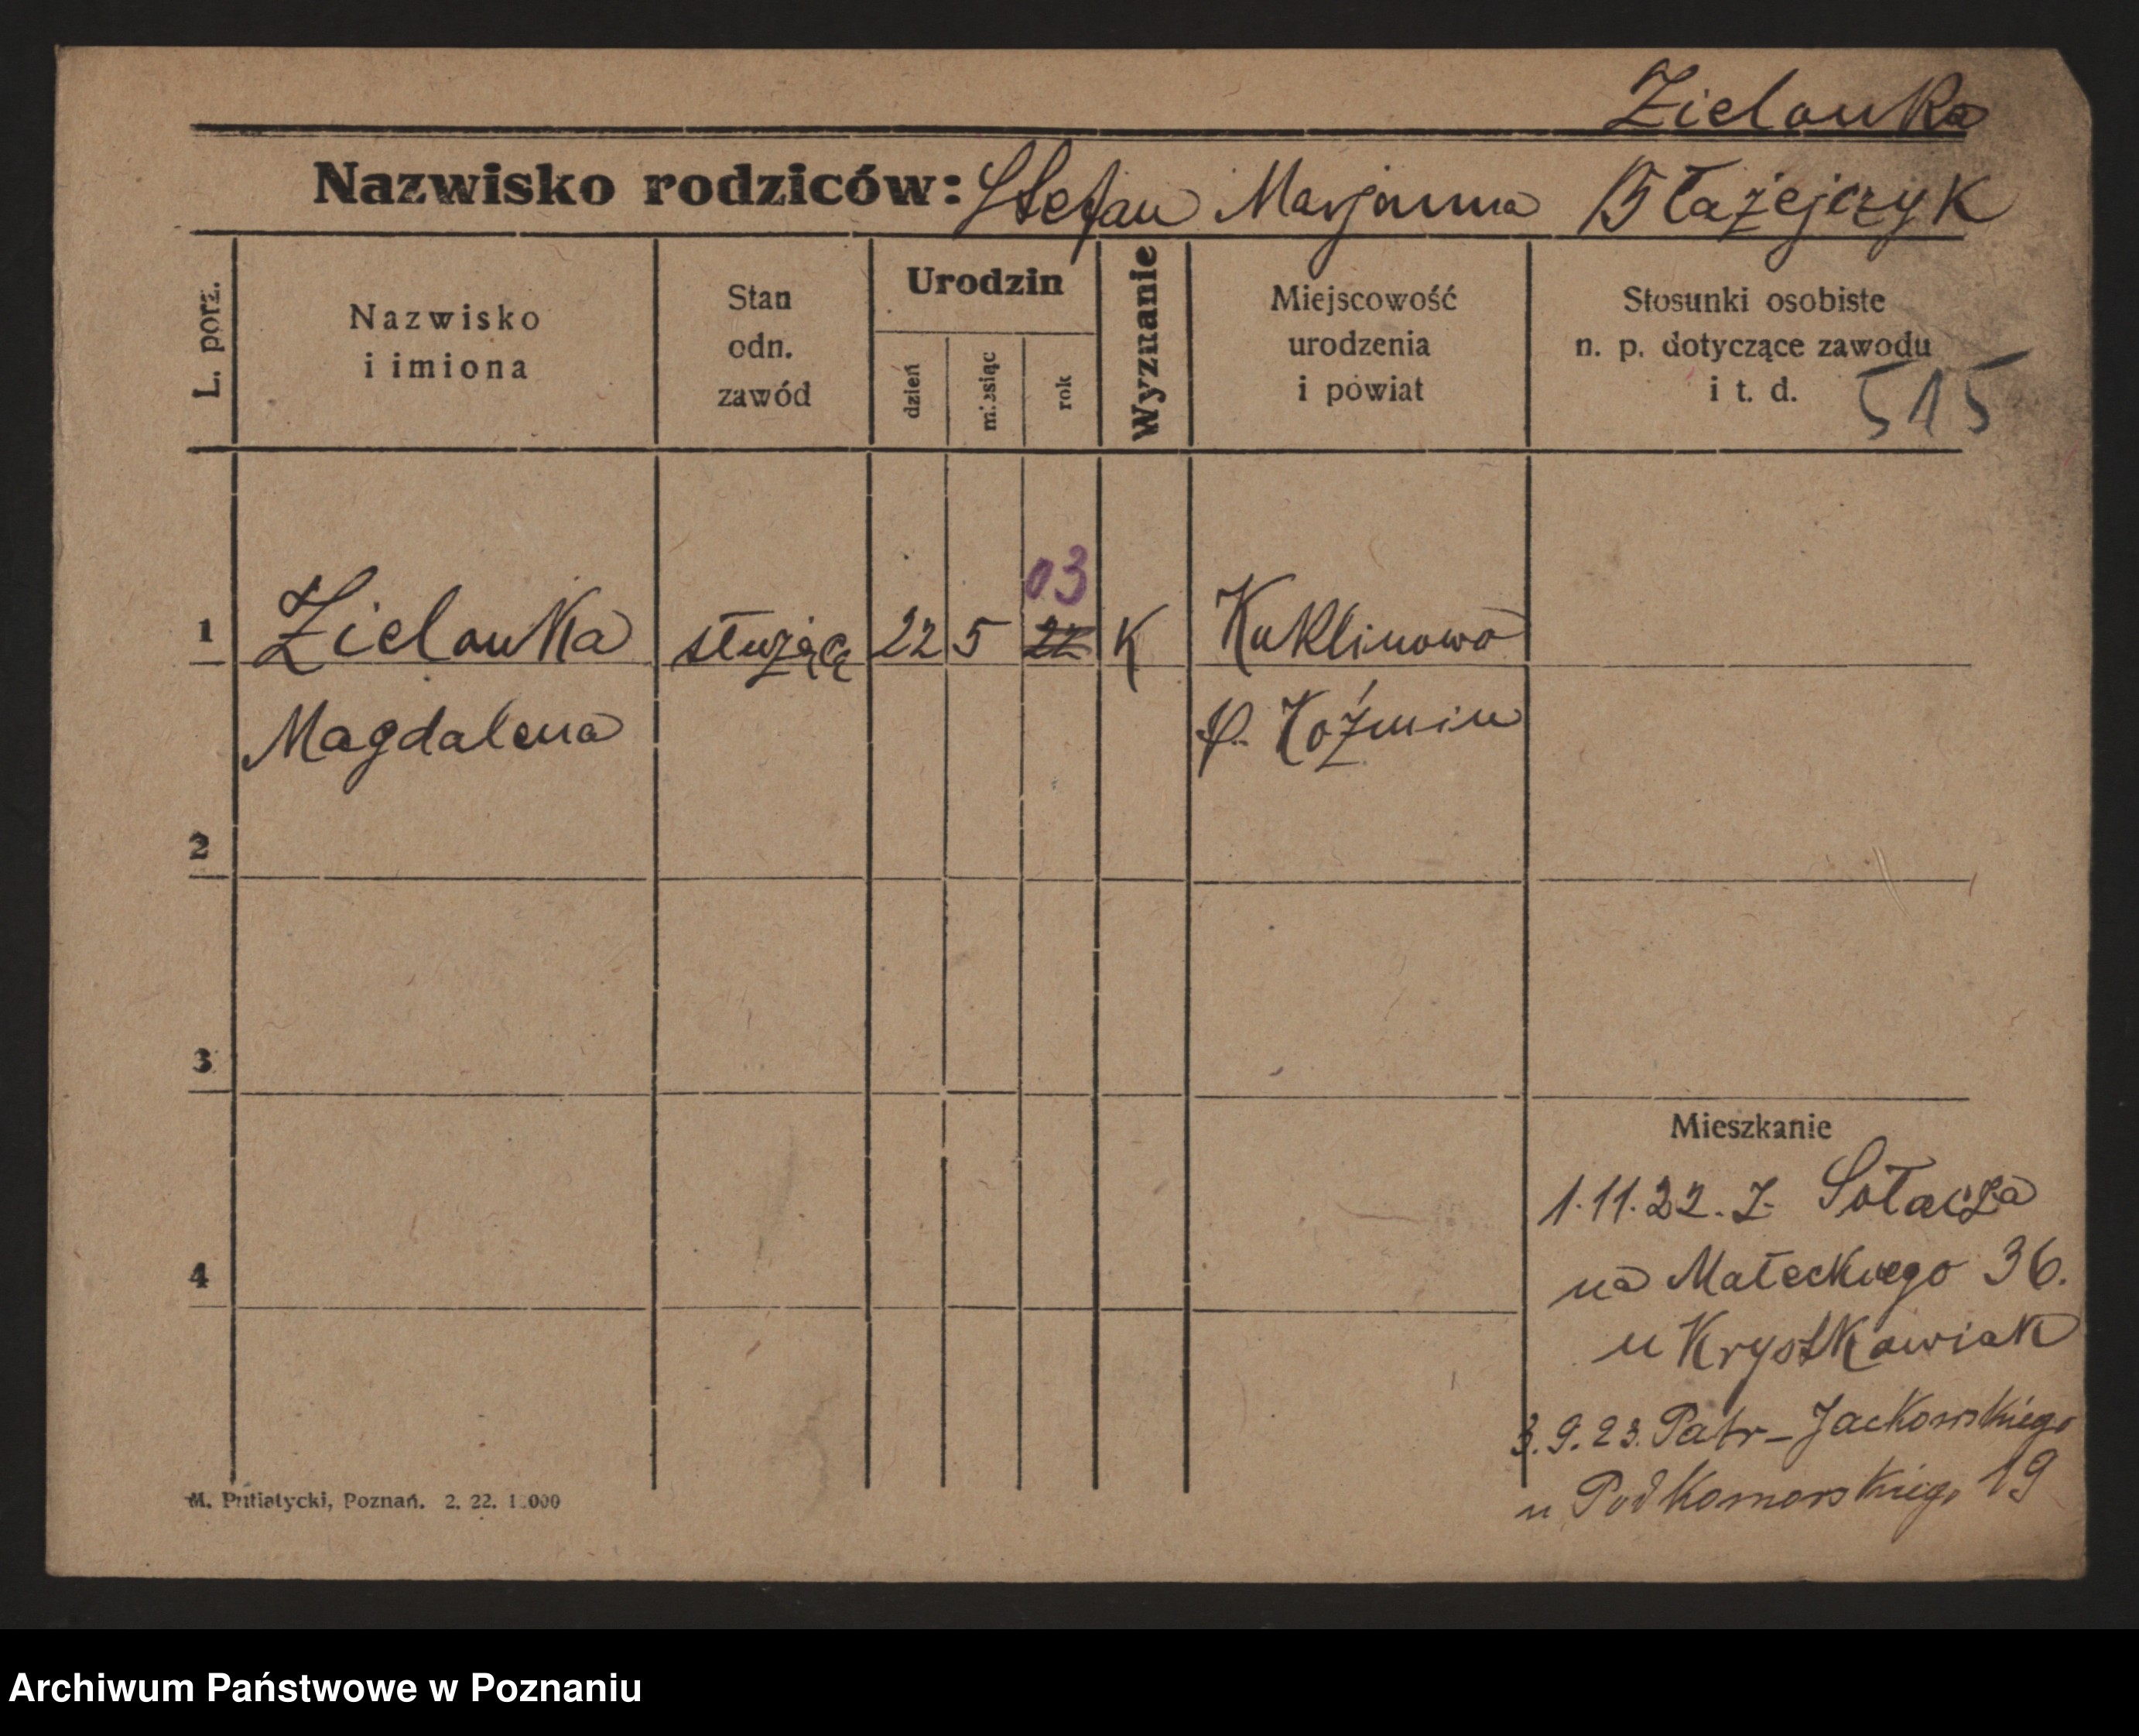 Zielonka
Nazwisko rodziców: Stefan Marjanna Błażejczyk
L. porz.
Nazwisko
i imiona
Stan
odn.
zawód
Urodzin
dzień
miesiąc
rok
Wyznanie
Miejscowość
urodzenia
i powiat
Stosunki osobiste
n. p. dotyczące zawodu
i t. d.
515
03
1 Zielonka służąca 22 5 22 K Kuklinowo
Magdalena p. Koźmin
2
3
Mieszkanie
1.11.22. z Sołacza
na Małeckiego 36.
4
u Krystkowiak
3.9.23. Patr-Jackowskiego
u Podkomorskiego 19
M. Putiatycki, Poznań. 2. 22.
Archiwum Państwowe w Poznaniu